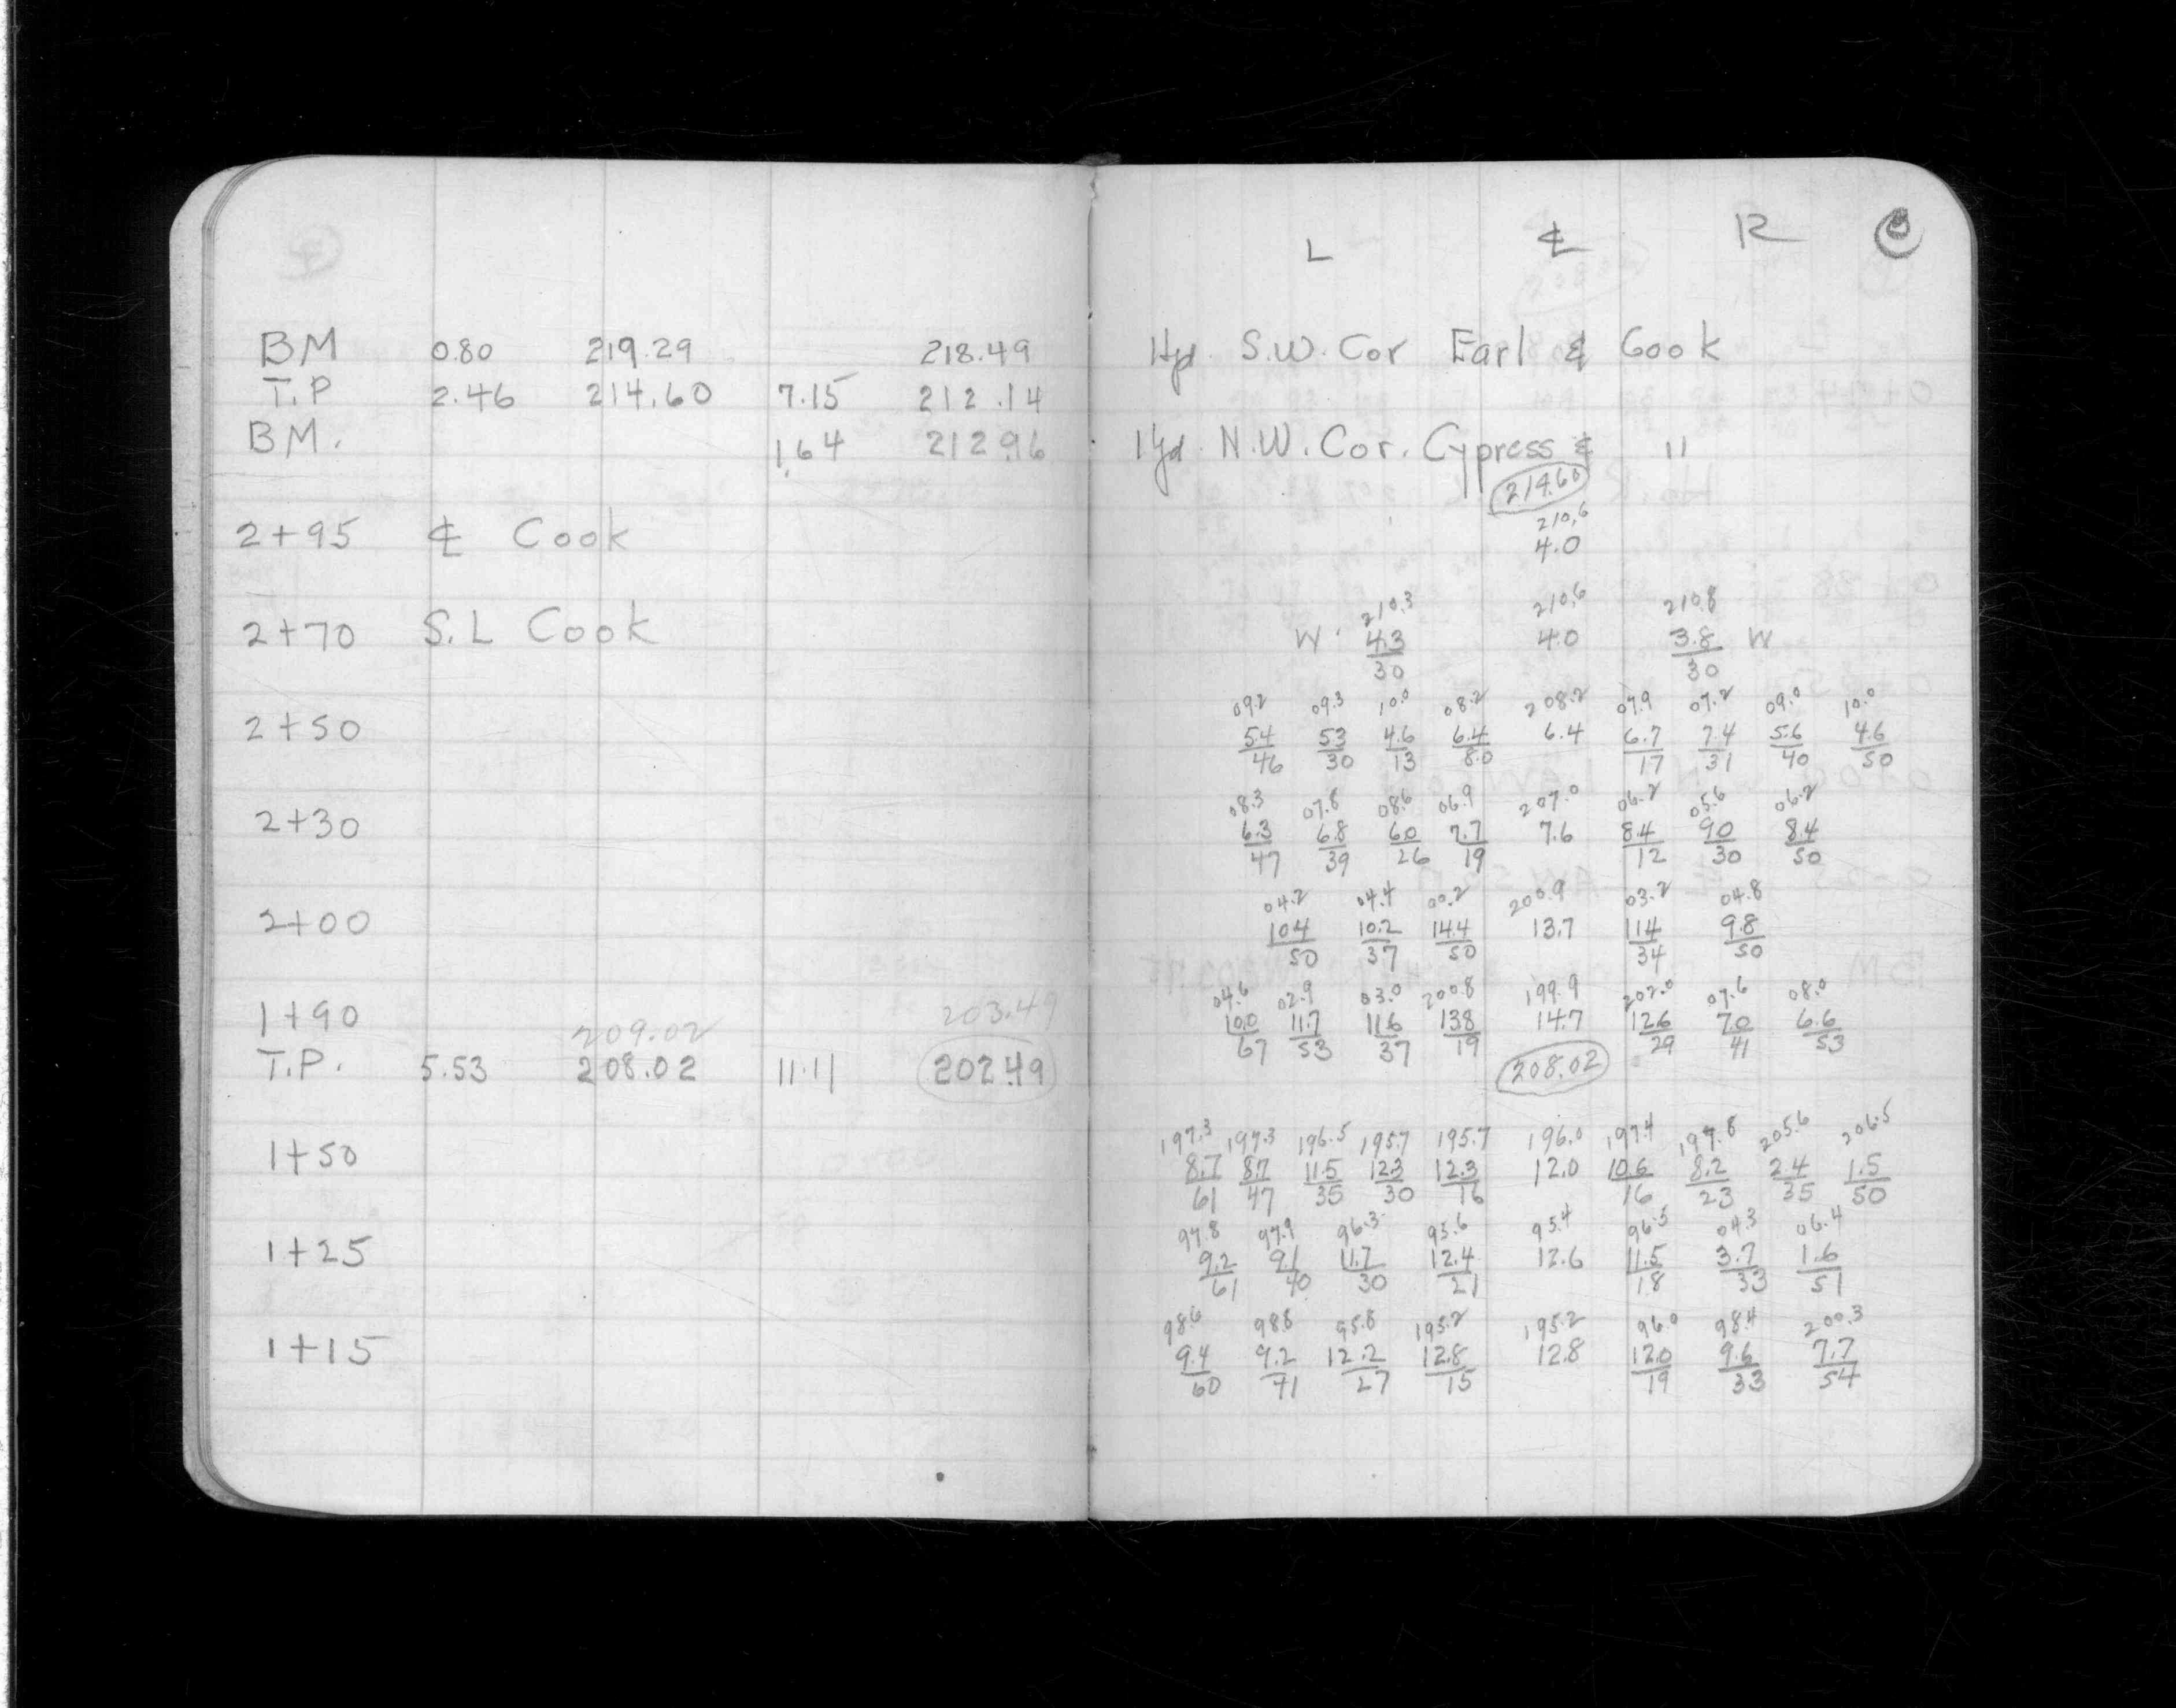 L ⅊ R
BM 0.80 219.29 218.49 Hyd. S.W. Cor Earl & Cook
T.P 2.46 214.60 7.15 212.14
BM. 1.64 212.96 Hyd. N.W. Cor. Cypress & "
214.60
210.6
2+95 ℄ Cook 4.0
210.3 210.6 210.8
2+70 S.L Cook W 4.3 4.0 3.8 W
30 30
09.2 09.3 10.0 08.2 208.2 07.9 07.2 09.0 10.0
2+50 5.4 5.3 4.6 6.4 6.4 6.7 7.4 5.6 4.6
46 30 13 8.0 17 31 40 50
08.3 07.8 08.6 06.9 207.0 06.2 05.6 06.2
2+30 6.3 6.8 6.0 7.7 7.6 8.4 9.0 8.4
47 39 26 19 12 30 50
04.2 04.4 00.2 200.9 03.2 04.8
2+00 10.4 10.2 14.4 13.7 11.4 9.8
50 37 50 34 50
04.6 02.9 03.0 200.8 199.9 202.0 07.6 08.0
1+90 203.49 10.0 11.7 11.6 13.8 14.7 12.6 7.0 6.6
67 53 37 19 29 41 53
209.02
T.P. 5.53 208.02 11.11 202.49 208.02
197.3 197.3 196.5 195.7 195.7 196.0 197.4 197.8 205.6 206.5
1+50 8.7 8.7 11.5 12.3 12.3 12.0 10.6 8.2 2.4 1.5
61 47 35 30 16 16 23 35 50
97.8 97.9 96.3 95.6 95.4 96.5 04.3 06.4
1+25 9.2 9.1 11.7 12.4 12.6 11.5 3.7 1.6
61 40 30 21 18 33 51
98.6 98.8 95.8 195.2 195.2 96.0 98.4 200.3
1+15 9.4 9.2 12.2 12.8 12.8 12.0 9.6 7.7
60 41 27 15 19 33 54